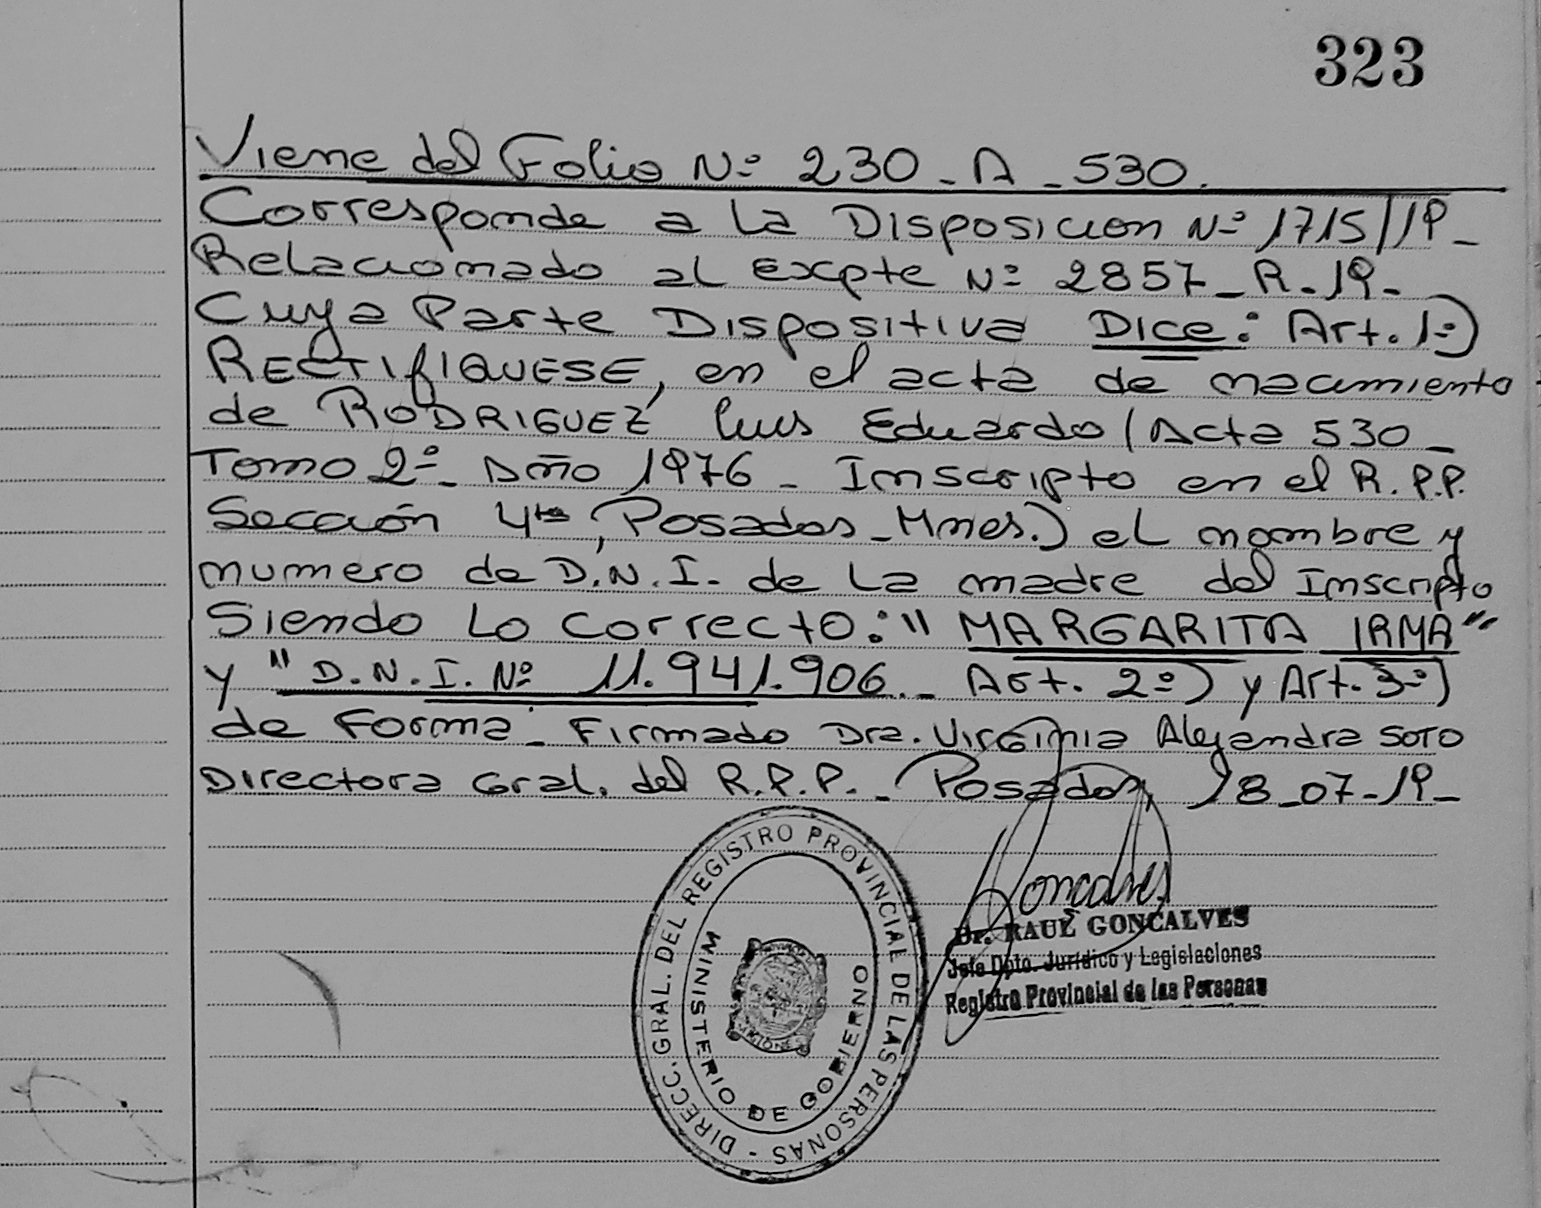 323
Viene del Folio Nº 230 - A - 530.
Corresponde a la Disposicion Nº 1715/19 -
Relacionado al Expte Nº 2857 - R - 19 -
Cuya Parte Dispositiva Dice: Art. 1º)
RECTIFIQUESE, en el acta de nacimiento
de RODRIGUEZ Luis Eduardo (Acta 530 -
Tomo 2º - Año 1976 - Inscripto en el R.P.P.
Sección 4ta, Posadas - Mnes.) el nombre y
numero de D.N.I. de la madre del Inscripto
Siendo lo correcto: "MARGARITA IRMA"
y "D.N.I. Nº 11.941.906 - Art. 2º) y Art. 3º)
de Forma - Firmado Dra. Virginia Alejandra SOTO
Directora Gral. del R.P.P. - Posadas, 18-07-19 -
DIRECC. GRAL. DEL REGISTRO PROVINCIAL DE LAS PERSONAS -
MINISTERIO DE GOBIERNO
Goncalves
Dr. RAUL GONCALVES
Jefe Dpto. Jurídico y Legislaciones
Registro Provincial de las Personas